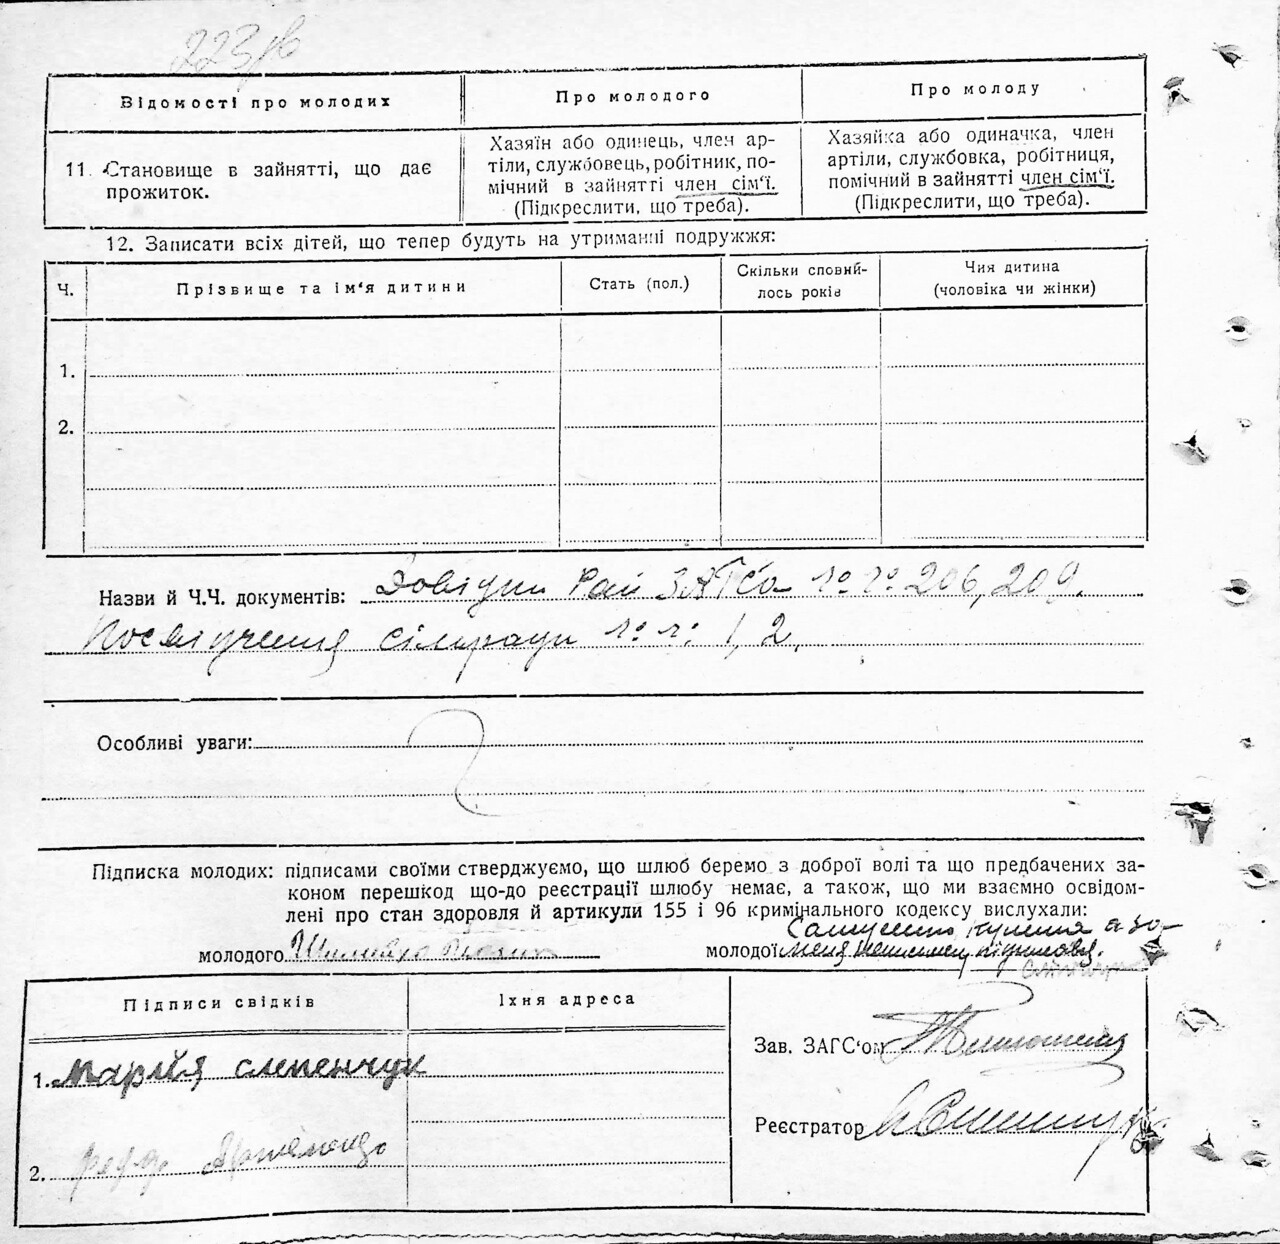 223/в
Відомості про молодих
Про молодого
Про молоду
11. Становище в зайнятті, що дає
прожиток.
Хазяїн або одинець, член ар-
тіли, службовець, робітник, по-
мічний в зайнятті член сім'ї.
(Підкреслити, що треба).
Хазяйка або одиначка, член
артіли, службовка, робітниця,
помічний в зайнятті член сім'ї.
(Підкреслити, що треба).
12. Записати всіх дітей, що тепер будуть на утриманні подружжя:
Ч.
Прізвище та ім'я дитини
Стать (пол.)
Скільки сповни-
лось років
Чия дитина
(чоловіка чи жінки)
1.
2.
Назви й Ч.Ч. документів: Довідки Рай ЗАГСа 206, 209.
Посвідчення сільради 1, 2.
Особливі уваги:
Підписка молодих: підписами своїми стверджуємо, що шлюб беремо з доброї волі та що предбачених за-
коном перешкод що-до реєстрації шлюбу немає, а також, що ми взаємно освідом-
лені про стан здоровля й артикули 155 і 96 кримінального кодексу вислухали:
молодого
молодої
Підписи свідків
Їхня адреса
1. Марія слепенчук
2.
Зав. ЗАГС'ом
Реєстратор